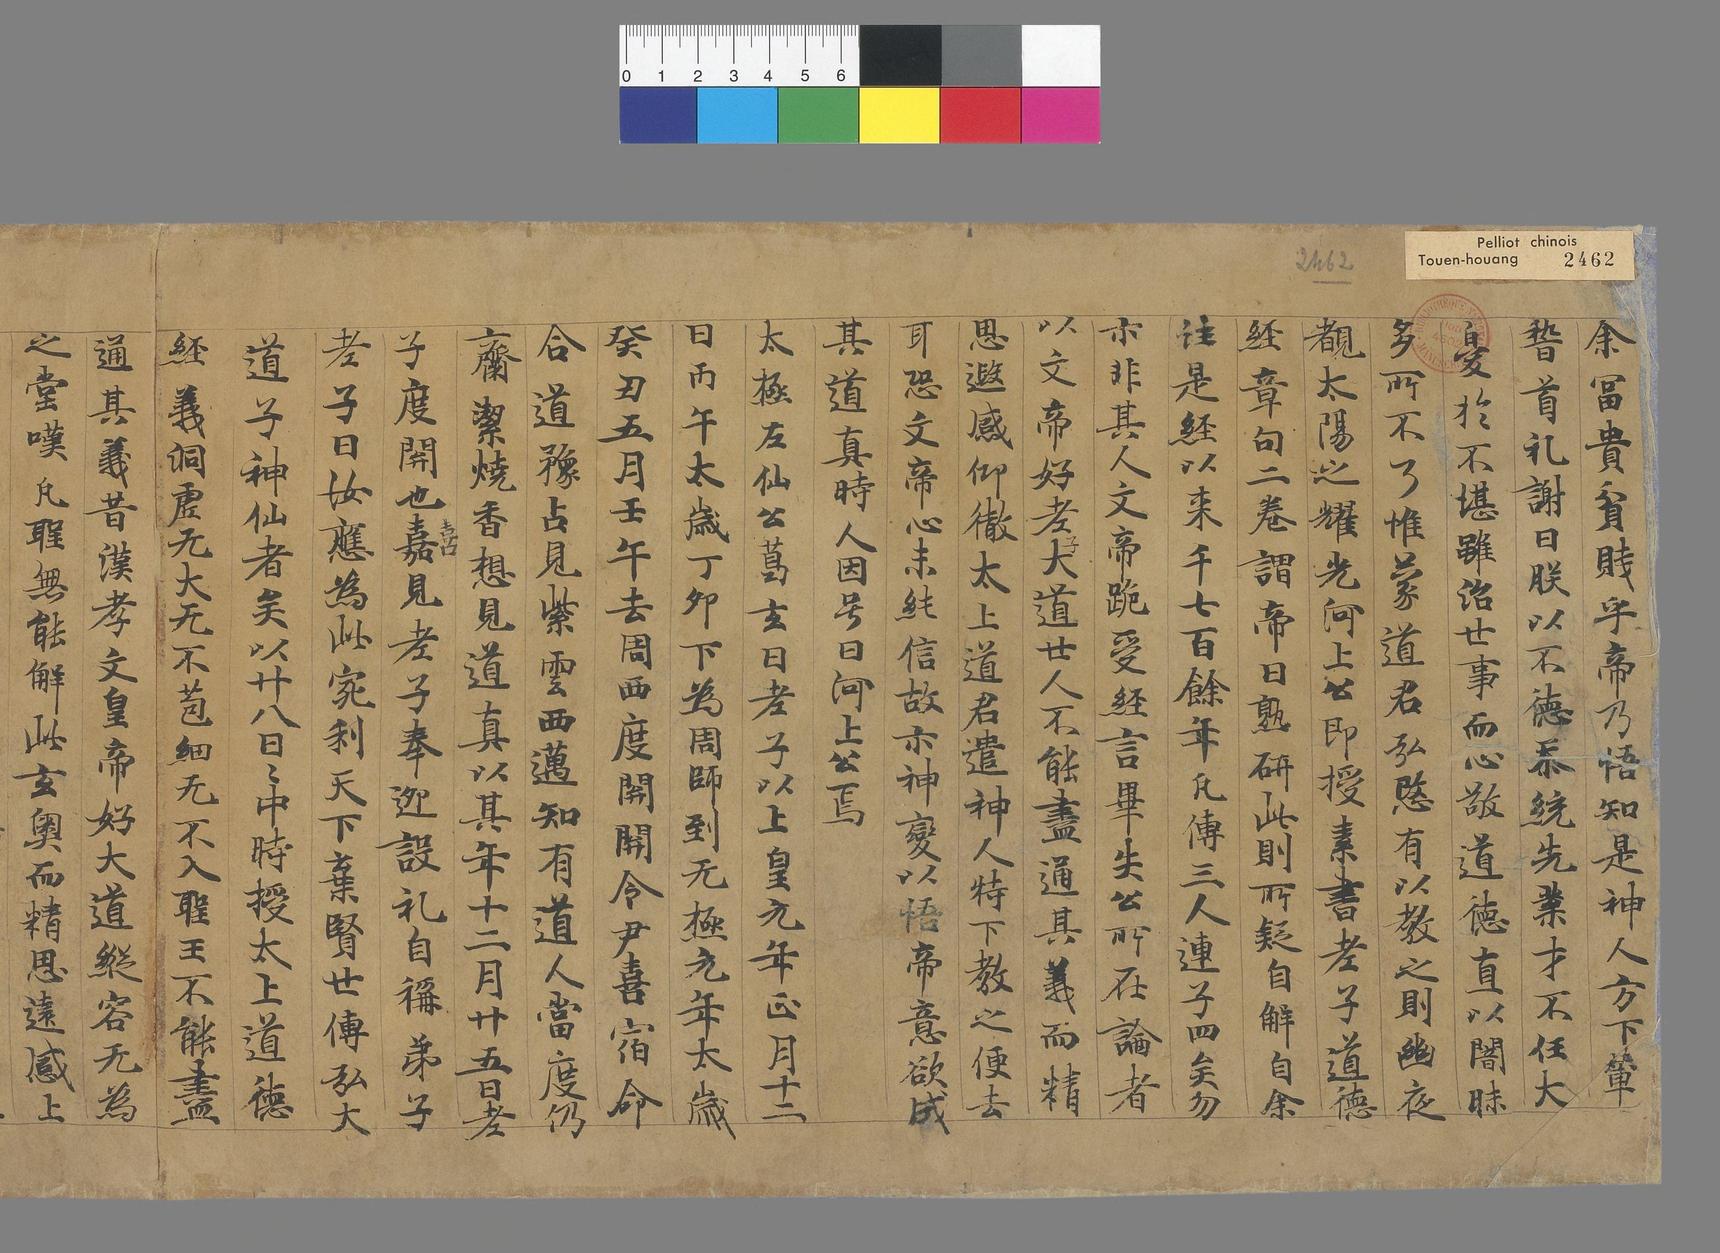 0 1 2 3 4 5 6
Pelliot chinois
Touen-houang 2462
2462
余冨貴貧賎乎帝乃悟知是神人方下輦
𥡴首礼謝曰朕以不徳忝統先業才不任大
憂於不堪雖治世事而心敬道徳直以闇昧
多所不了惟蒙道君弘愍有以教之則幽夜
覩太陽之耀光河上公即授素書老子道德
経章句二卷謂帝曰熟研此則所疑自解自余
注是経以来千七百餘年凡傳三人連子四矣勿
示非其人文帝跪受経言畢失公所在論者
以文帝好老子大道世人不能盡通其義而精
思遐感仰徹太上道君遣神人特下教之便去
耳恐文帝心未純信故示神變以悟帝意欲成
其道真時人因号曰河上公焉
太極左仙公葛玄曰老子以上皇元年正月十二
日丙午太歲丁卯下為周師到无極元年太歲
癸丑五月壬午去周西度関関令尹喜宿命
合道豫占見紫雲西邁知有道人當度仍
齋潔燒香想見道真以其年十二月廿五日老
子度関也嘉喜見老子奉迎設礼自稱弟子
老子曰汝應為此宛利天下棄賢世傳弘大
道子神仙者矣以廿八日〻中時授太上道德
経義洞虛无大无不苞細无不入聖王不能盡
通其義昔漢孝文皇帝好大道縱容无為
之堂嘆凡聖無能解此玄奧而精思遠感上